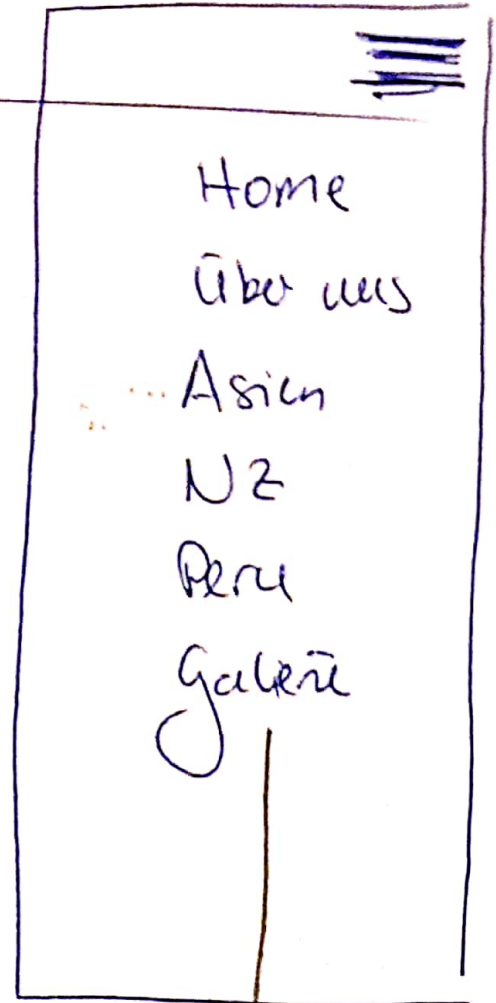 Home
Über uns
Asien
NZ
Peru
Galerie